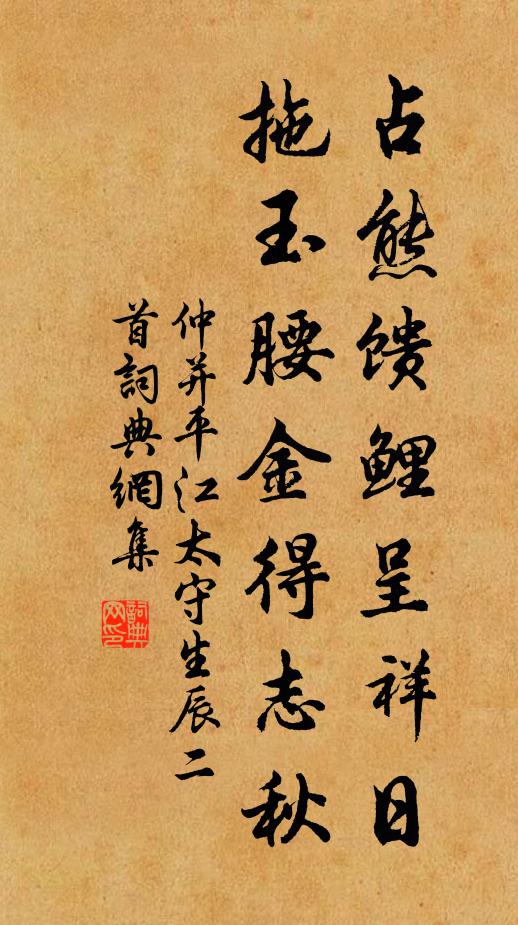 占熊馈鲤呈祥日
拖玉腰金得志秋
仲并平江太守生辰二
首詞典網集
詞典网印